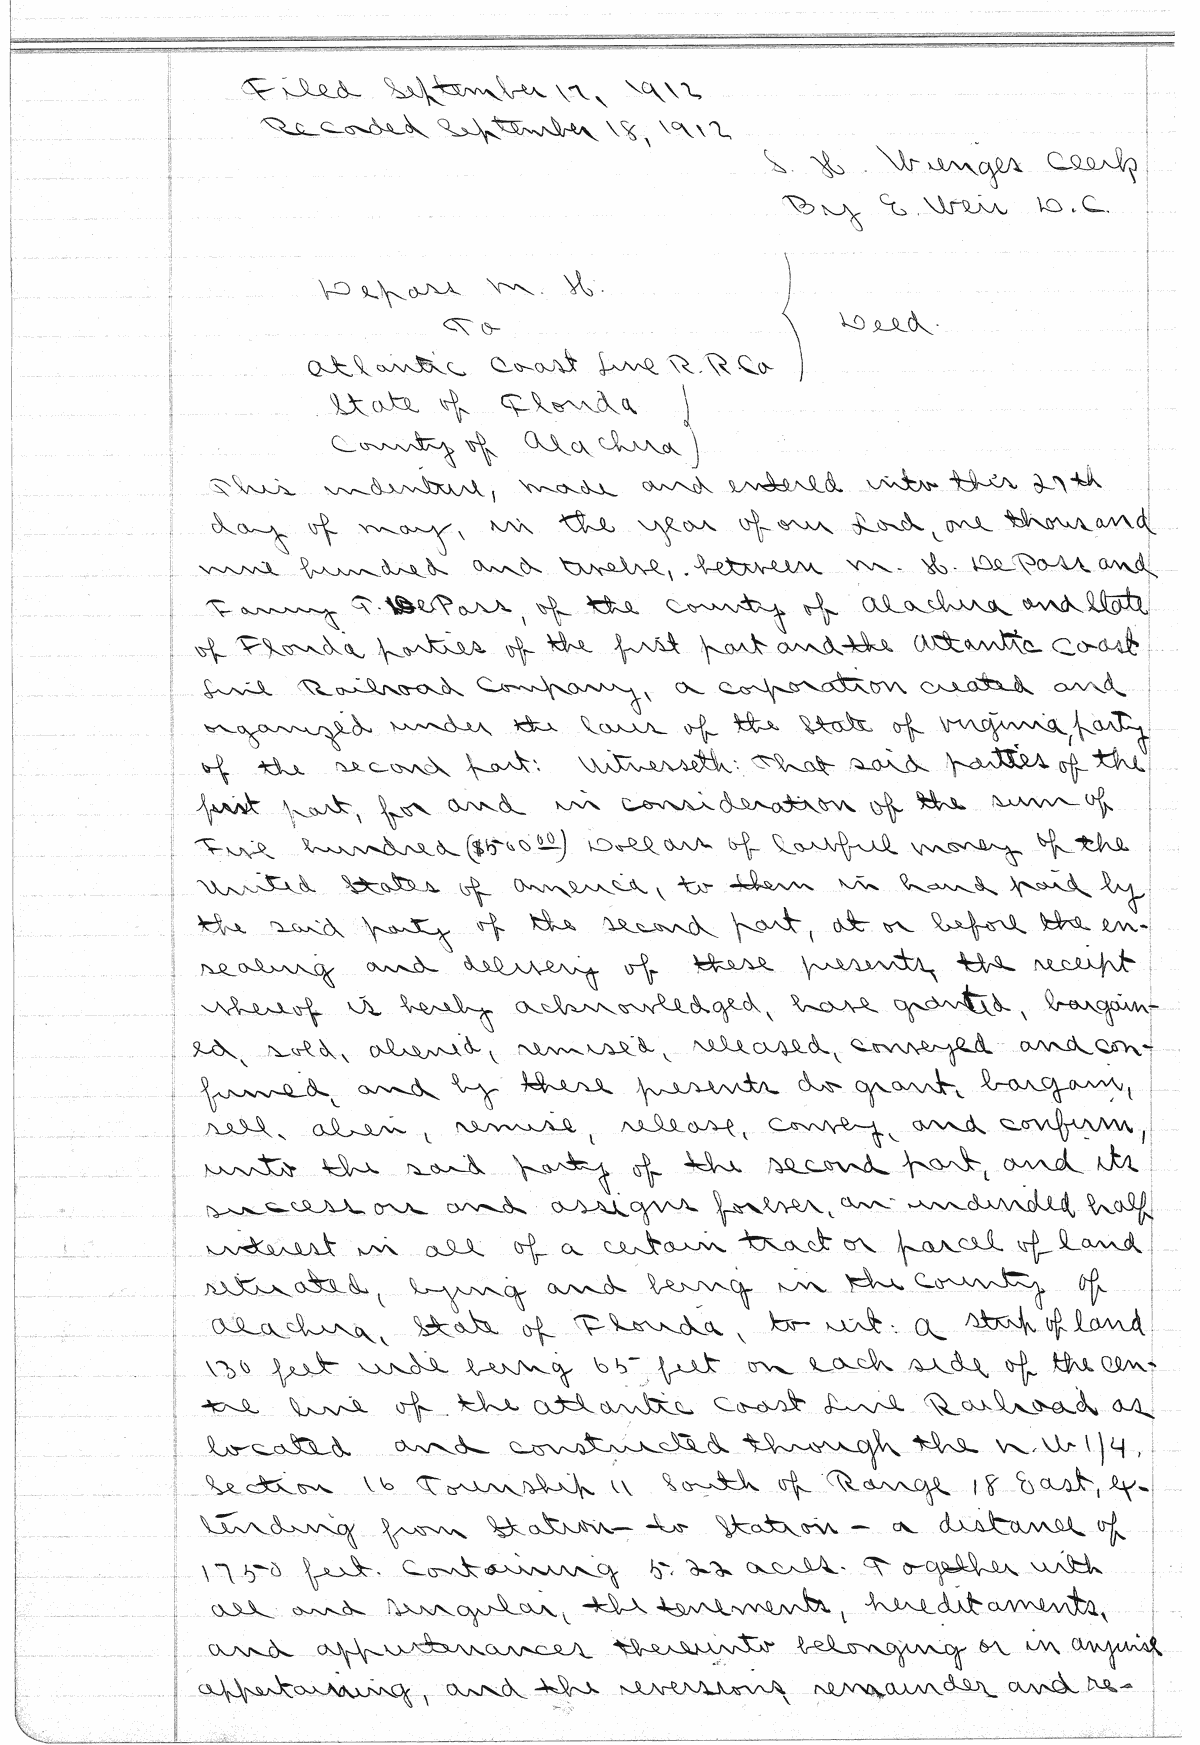 Filed September 17, 1912
Recorded September 18, 1912
S. H. Wienges Clerk
By E. Weir D.C.
Depass M. H.
To
Deed.
Atlantic Coast Line R. R Co
State of Florida
County of Alachua
This indenture, made and entered into this 27th
day of may, in the year of our Lord, one thousand
nine hundred and twelve, between M. H. DePass and
Fanny T. DePass, of the county of Alachua and State
of Florida parties of the first part and the Atlantic Coast
Line Railroad Company, a corporation created and
organized under the laws of the State of Virginia, party
of the second part: Witnesseth: That said parties of the
first part, for and in consideration of the sum of
Five hundred ($500.00) Dollars of lawful money of the
United States of America, to them in hand paid by
the said party of the second part, at or before the en-
sealing and delivery of these presents, the receipt
whereof is hereby acknowledged, have granted, bargain-
ed, sold, aliened, remised, released, conveyed and con-
firmed, and by these presents do grant, bargain,
sell, alien, remise, release, convey, and confirm,
unto the said party of the second part, and its
successors and assigns forever, an undivided half
interest in all of a certain tract or parcel of land
situated, lying and being in the County of
Alachua, State of Florida, to wit: A strip of land
130 feet wide being 65 feet on each side of the cen-
tre line of the Atlantic Coast Line Railroad as
located and constructed through the N. W 1/4,
Section 16 Township 11 South of Range 18 East, ex-
tending from Station - to Station - a distance of
1750 feet. Containing 5.22 acres. Together with
all and singular, the tenements, hereditaments,
and appurtenances thereunto belonging or in anywise
appertaining, and the reversions, remainder and re-